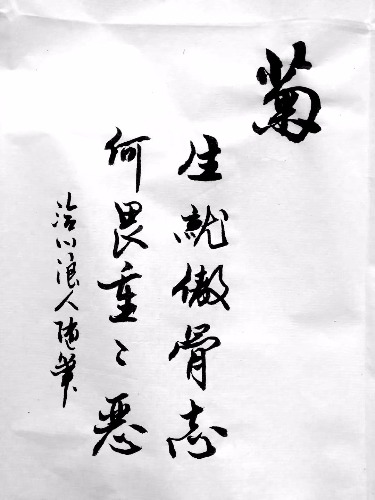 菊
生就傲骨志
何畏重〻恶
洽川浪人随笔